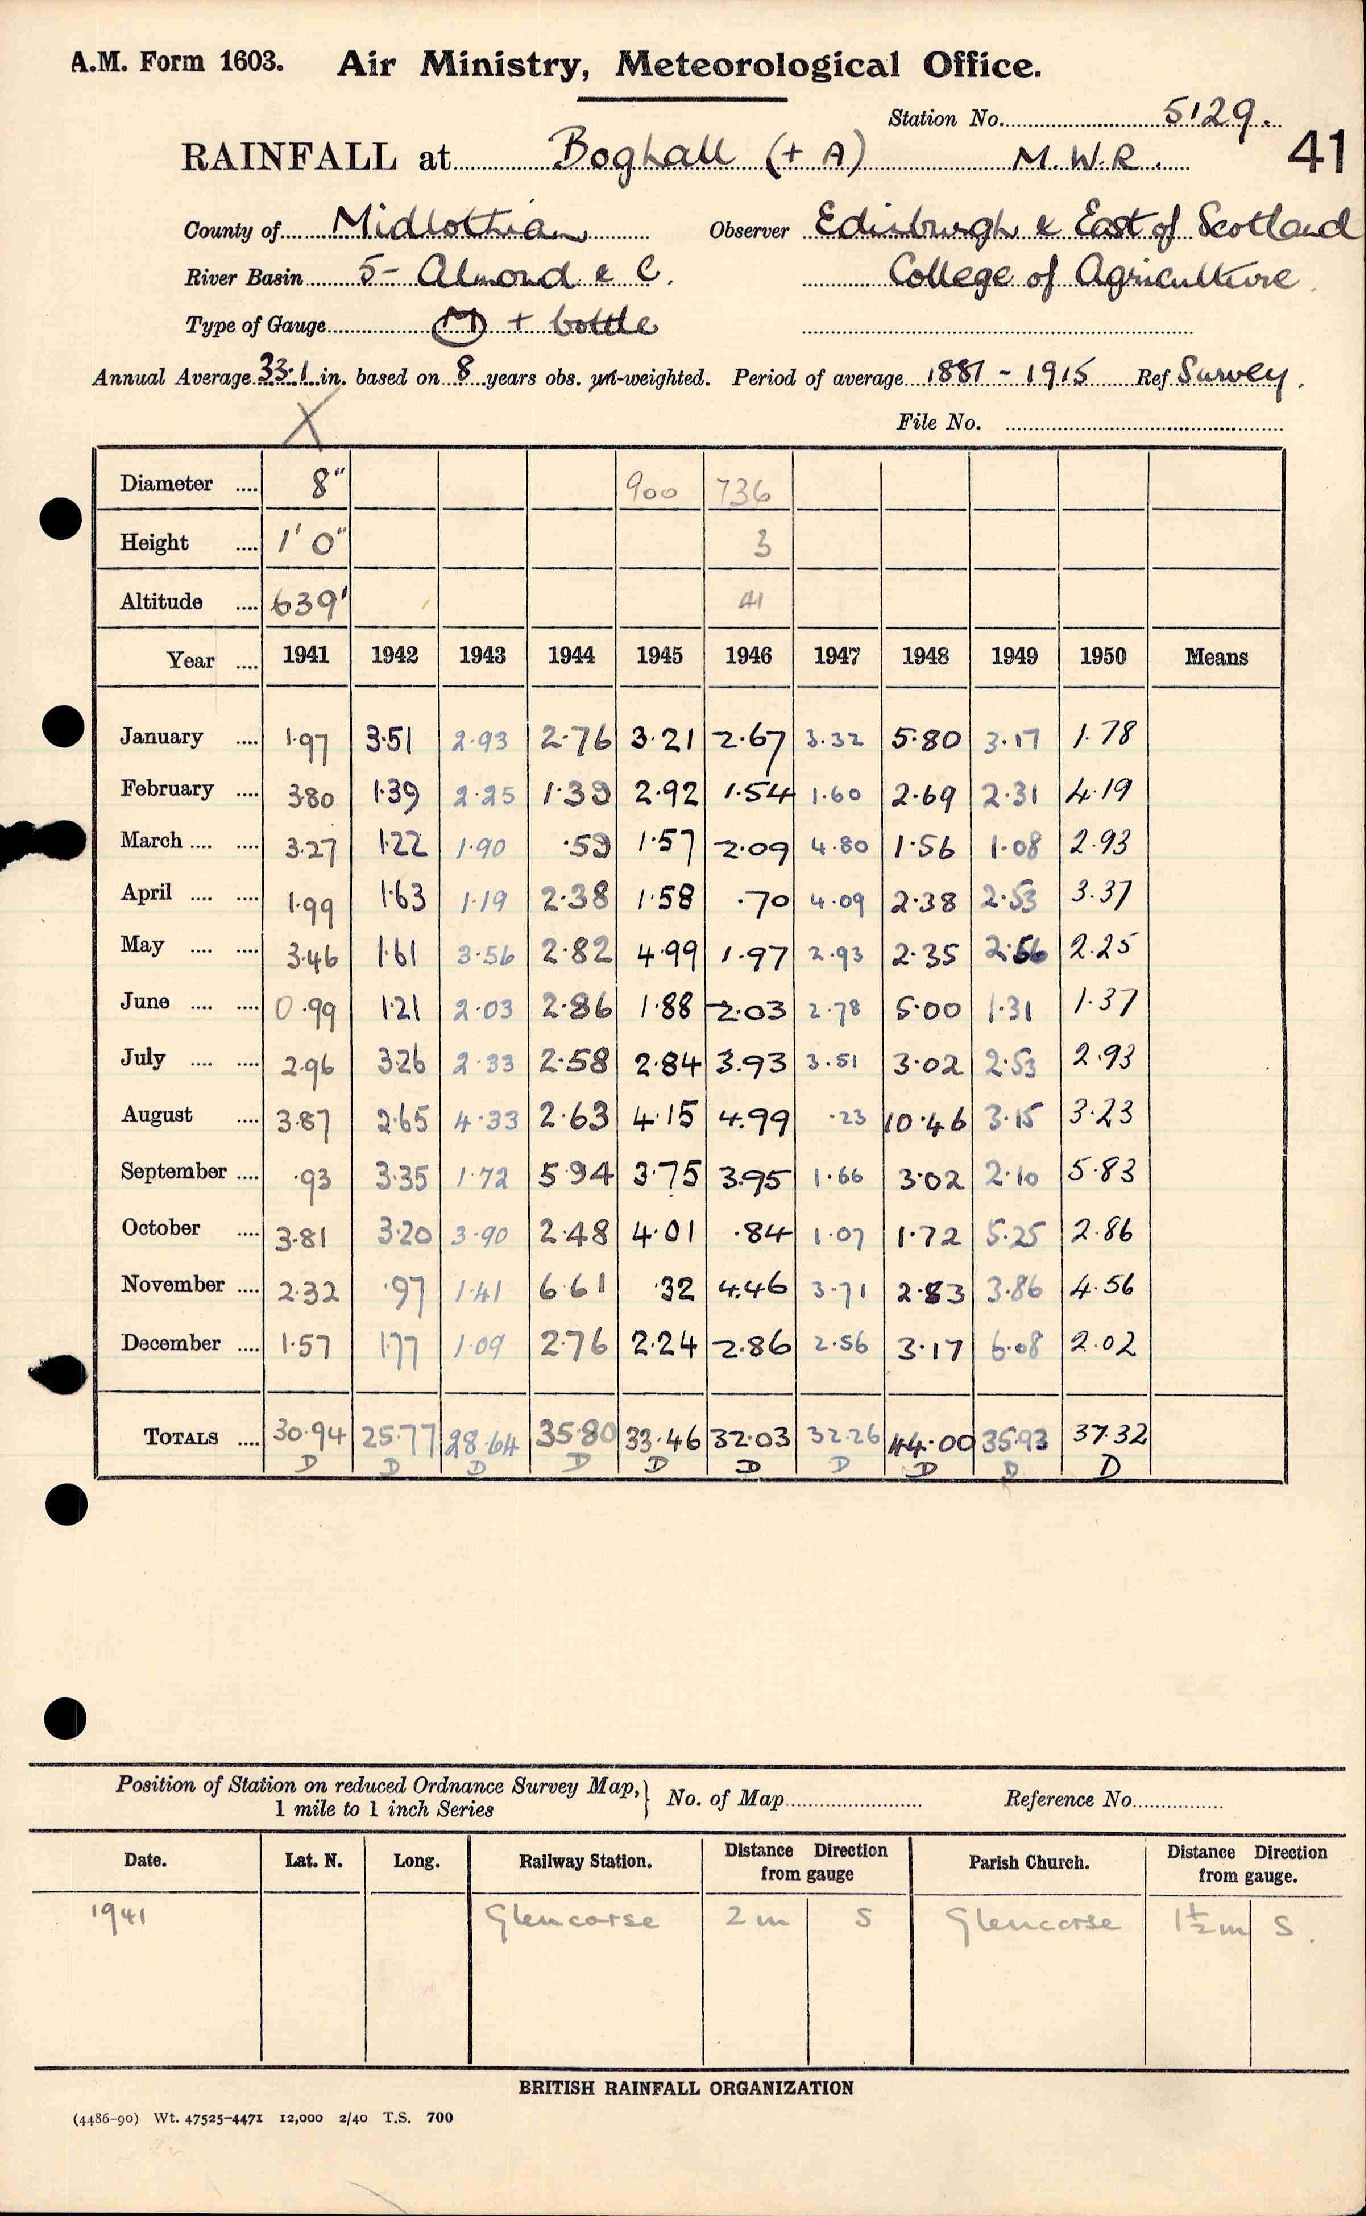 A.M. Form 1603. Air Ministry, Meteorological Office.
Station No. 5129.
RAINFALL at Boghall (+ A) M.W.R. 41
County of Midlothian Observer Edinburgh & East of Scotland
River Basin 5 - Almond & C. College of Agriculture.
Type of Gauge M + bottle
Annual Average 33.1 in. based on 8 years obs. un-weighted. Period of average 1881 - 1915 Ref Survey.
File No.
X
Diameter .... 8" 900 736
Height .... 1' 0" 3
Altitude .... 639' 41
Year .... 1941 1942 1943 1944 1945 1946 1947 1948 1949 1950 Means
January .... 1.97 3.51 2.93 2.76 3.21 2.67 3.32 5.80 3.17 1.78
February .... 3.80 1.39 2.25 1.39 2.92 1.54 1.60 2.69 2.31 4.19
March .... .... 3.27 1.22 1.90 .59 1.57 2.09 4.80 1.56 1.08 2.93
April .... .... 1.99 1.63 1.19 2.38 1.58 .70 4.09 2.38 2.53 3.37
May .... .... 3.46 1.61 3.56 2.82 4.99 1.97 2.93 2.35 2.56 2.25
June .... .... 0.99 1.21 2.03 2.86 1.88 2.03 2.78 5.00 1.31 1.37
July .... .... 2.96 3.26 2.33 2.58 2.84 3.93 3.51 3.02 2.53 2.93
August .... 3.87 2.65 4.33 2.63 4.15 4.99 .23 10.46 3.15 3.23
September .... .93 3.35 1.72 5.94 3.75 3.95 1.66 3.02 2.10 5.83
October .... 3.81 3.20 3.90 2.48 4.01 .84 1.07 1.72 5.25 2.86
November .... 2.32 .97 1.41 6.61 .32 4.46 3.71 2.83 3.86 4.56
December .... 1.57 1.77 1.09 2.76 2.24 2.86 2.56 3.17 6.08 2.02
TOTALS .... 30.94 25.77 28.64 35.80 33.46 32.03 32.26 44.00 35.93 37.32
D D D D D D D D D D
Position of Station on reduced Ordnance Survey Map, } No. of Map Reference No.
1 mile to 1 inch Series
Date. Lat. N. Long. Railway Station. Distance Direction from gauge Parish Church. Distance Direction from gauge.
1941 Glencorse 2 m S Glencorse 1½ m S.
BRITISH RAINFALL ORGANIZATION
(4486-90) Wt. 47525-4471 12,000 2/40 T.S. 700